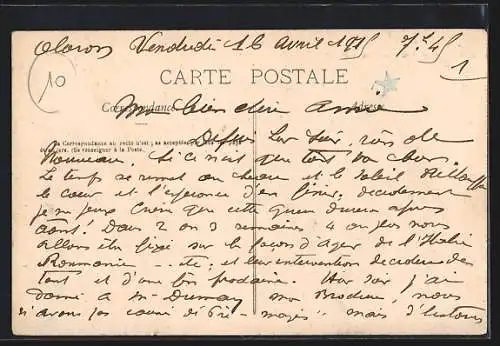 Oloron Vendredi 16 avril 1915 7h45
10
1
CARTE POSTALE
Correspondance
Adresse
Mon bien cher ami
La Correspondance au recto n'est pas acceptée
(Se renseigner à la Poste).
Depuis hier soir, rien de
Nouveau, si ce n'est que tout va bien.
Le temps se remet au beau et le soleil
le cœur et l'espérance d'en finir, décidément
je ne peux croire que cette guerre durera après
août! Dans 2 ou 3 semaines 4 au plus nous
allons être fixé sur la façon d'agir de l'Italie
Roumanie - etc. et leur intervention décidera de
tout et d'une fin prochaine. Hier soir j'ai
donné à Mr Dumay mon, nous
n'avons pas mais d'histoires